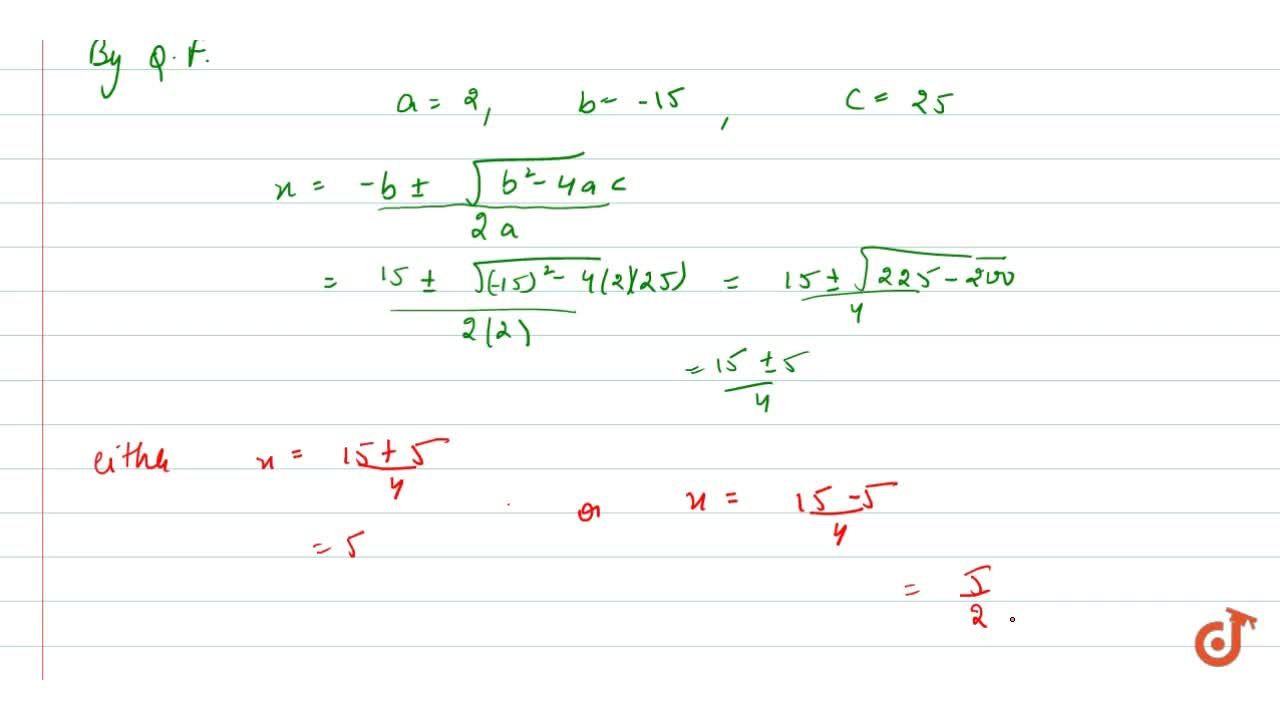 By Q.F.
a = 2, b = -15, c = 25
x = -b ± √(b² - 4ac) / 2a
= 15 ± √((-15)² - 4(2)(25)) / 2(2) = 15 ± √(225 - 200) / 4
= 15 ± 5 / 4
either x = 15 + 5 / 4
or x = 15 - 5 / 4
= 5
= 5 / 2